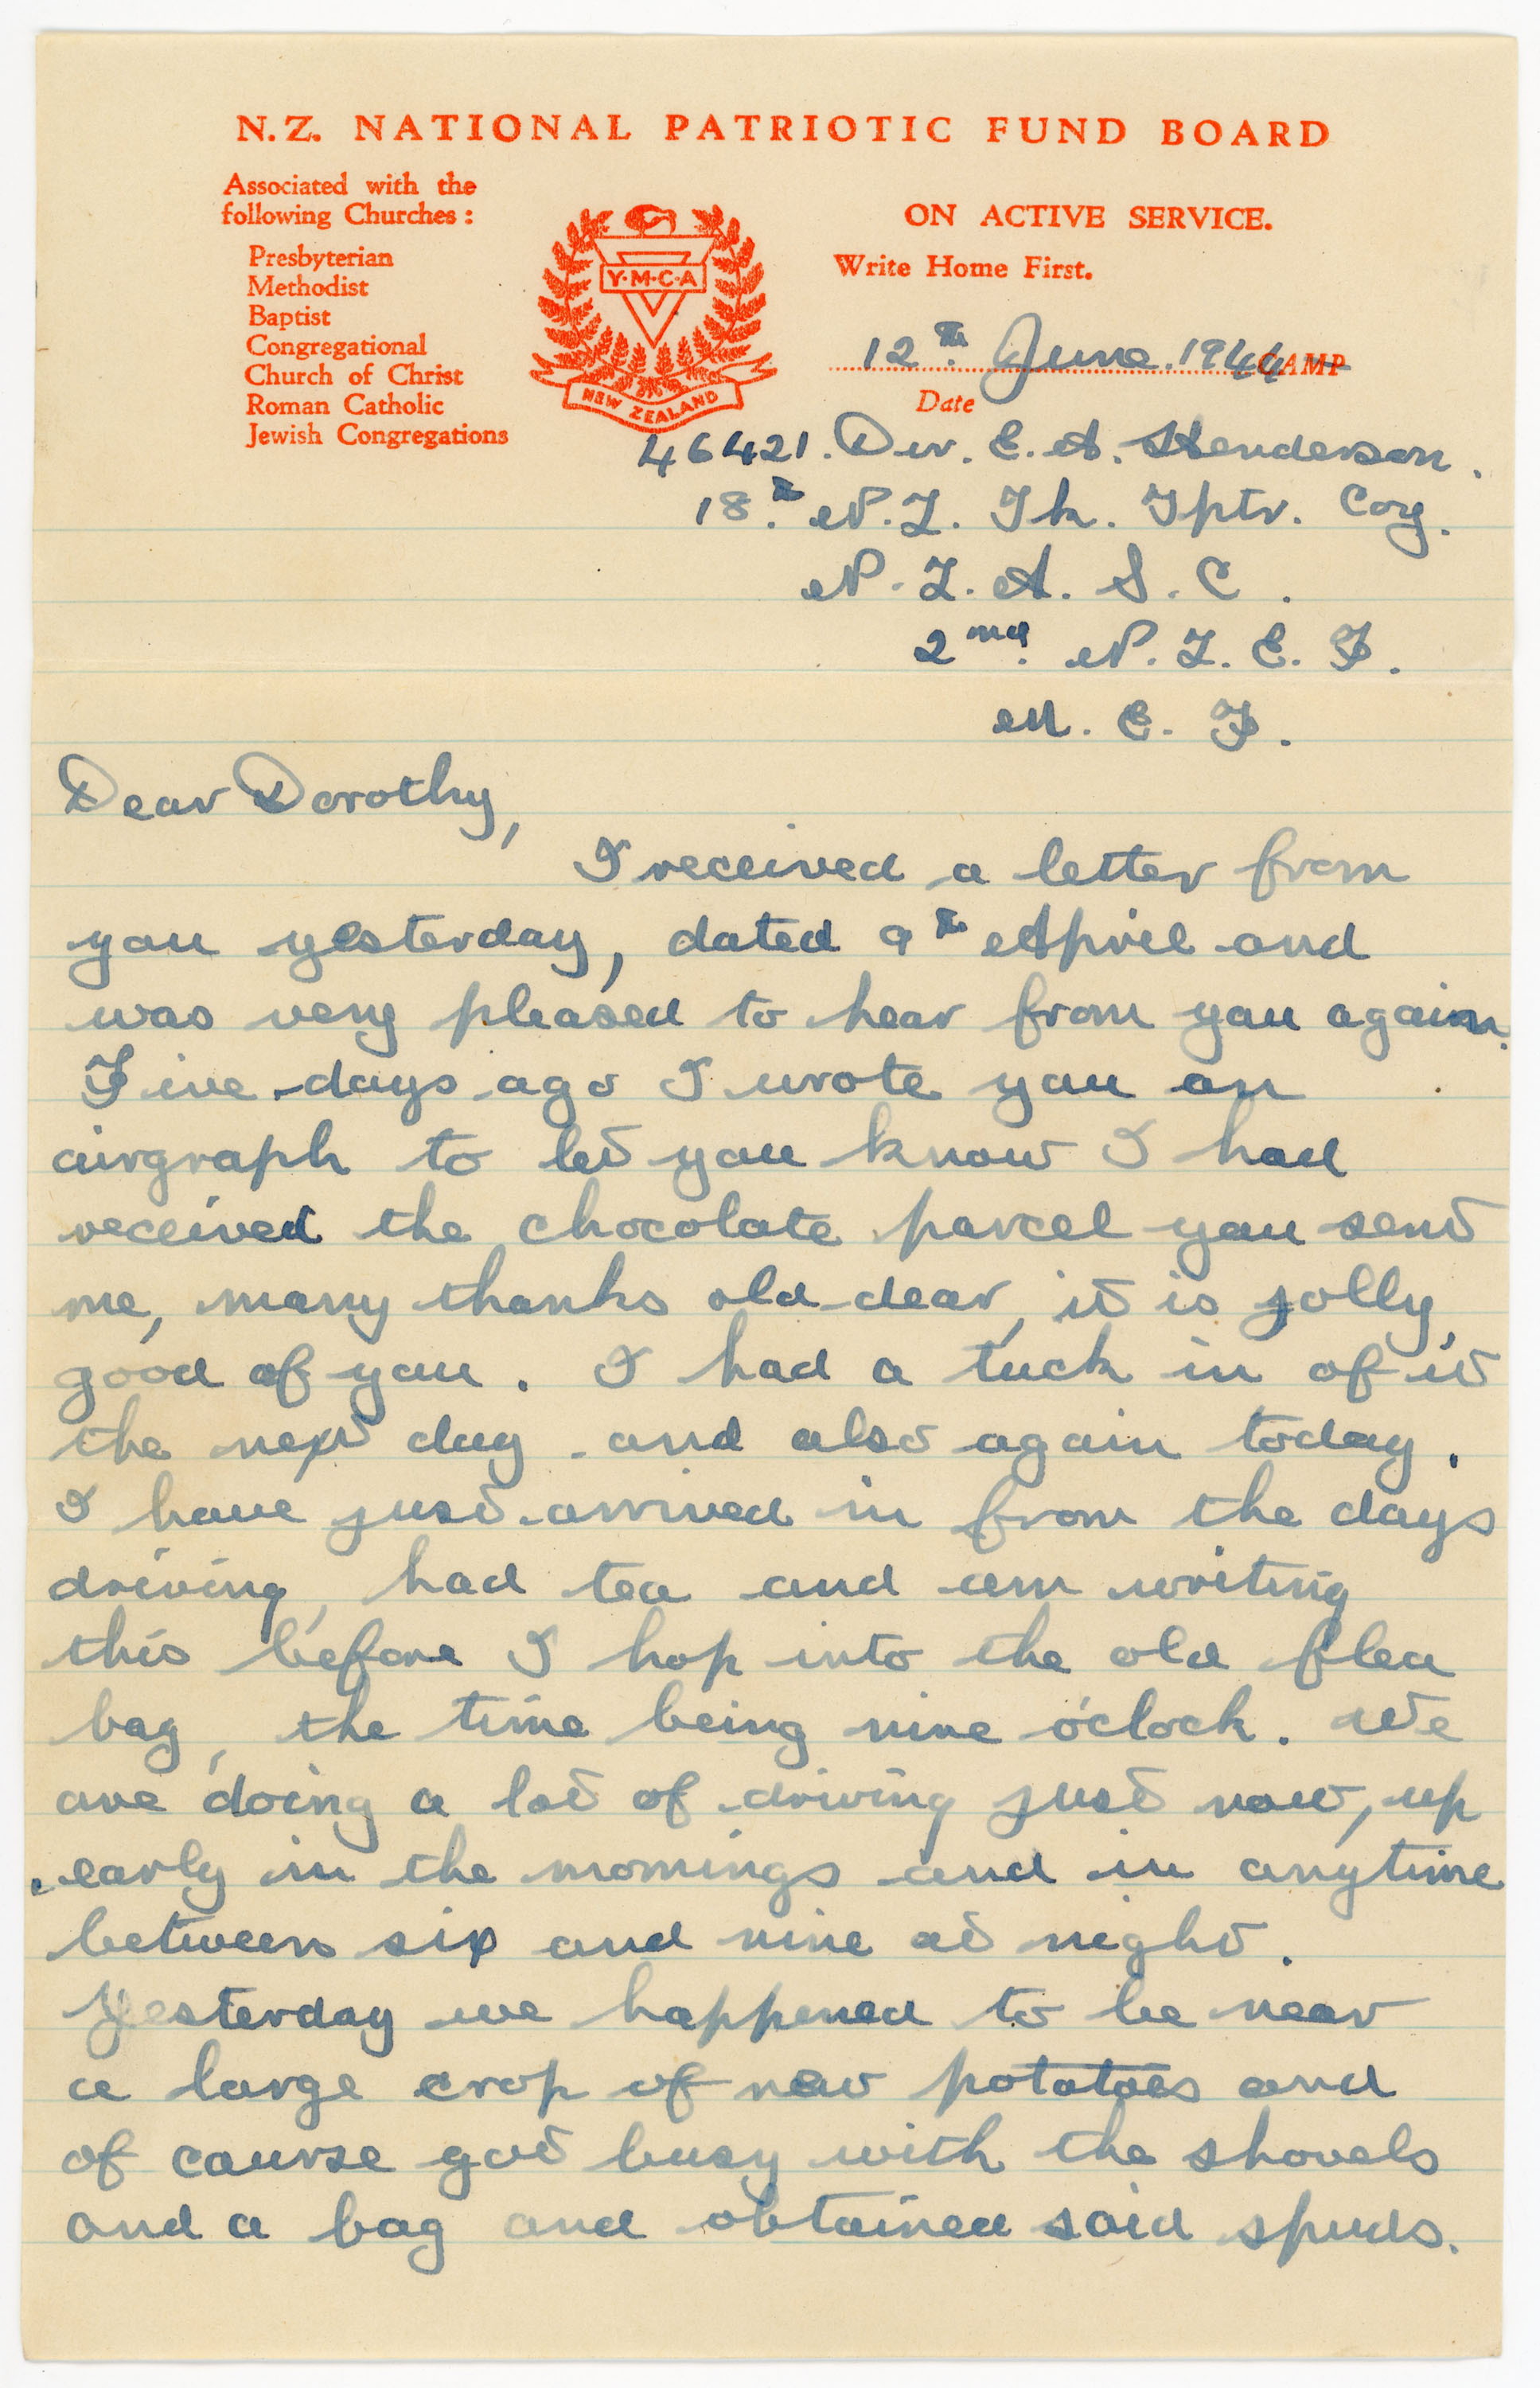 N.Z. NATIONAL PATRIOTIC FUND BOARD
Associated with the
following Churches :
Presbyterian
Methodist
Baptist
Congregational
Church of Christ
Roman Catholic
Jewish Congregations
Y·M·C·A
NEW ZEALAND
ON ACTIVE SERVICE.
Write Home First.
12th. June. 1944 CAMP
Date
46421. Dvr. E. A. Henderson.
18th. N. Z. Tk. Tptr. Coy.
N. Z. A. S. C.
2nd. N. Z. E. F.
M. E. F.
Dear Dorothy,
I received a letter from
you yesterday, dated 9th April and
was very pleased to hear from you again.
Five days ago I wrote you an
airgraph to let you know I had
received the chocolate parcel you sent
me, many thanks old dear, it is jolly
good of you. I had a tuck in of it
the next day and also again today.
I have just arrived in from the days
driving, had tea and am writing
this before I hop into the old flea
bag, the time being nine o'clock. We
are doing a lot of driving just now, up
early in the mornings and in anytime
between six and nine at night.
Yesterday we happened to be near
a large crop of new potatoes and
of course got busy with the shovels
and a bag and obtained said spuds.